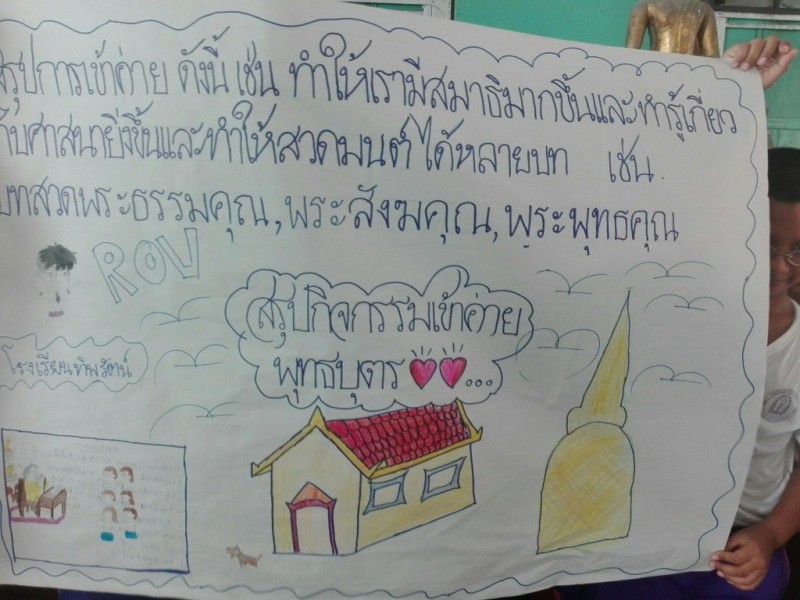 สรุปการเข้าค่าย ดังนี้ เช่น ทำให้เรามีสมาธิมากขึ้นและทำรู้เกี่ยว
กับศาสนายิ่งขึ้นและทำให้สวดมนต์ ได้หลายบท เช่น.
บทสวดพระธรรมคุณ, พระสังฆคุณ, พระพุทธคุณ
ROV
สรุปกิจกรรมเข้าค่าย
พุทธบุตร ...
โรงเรียนทิพรัตน์